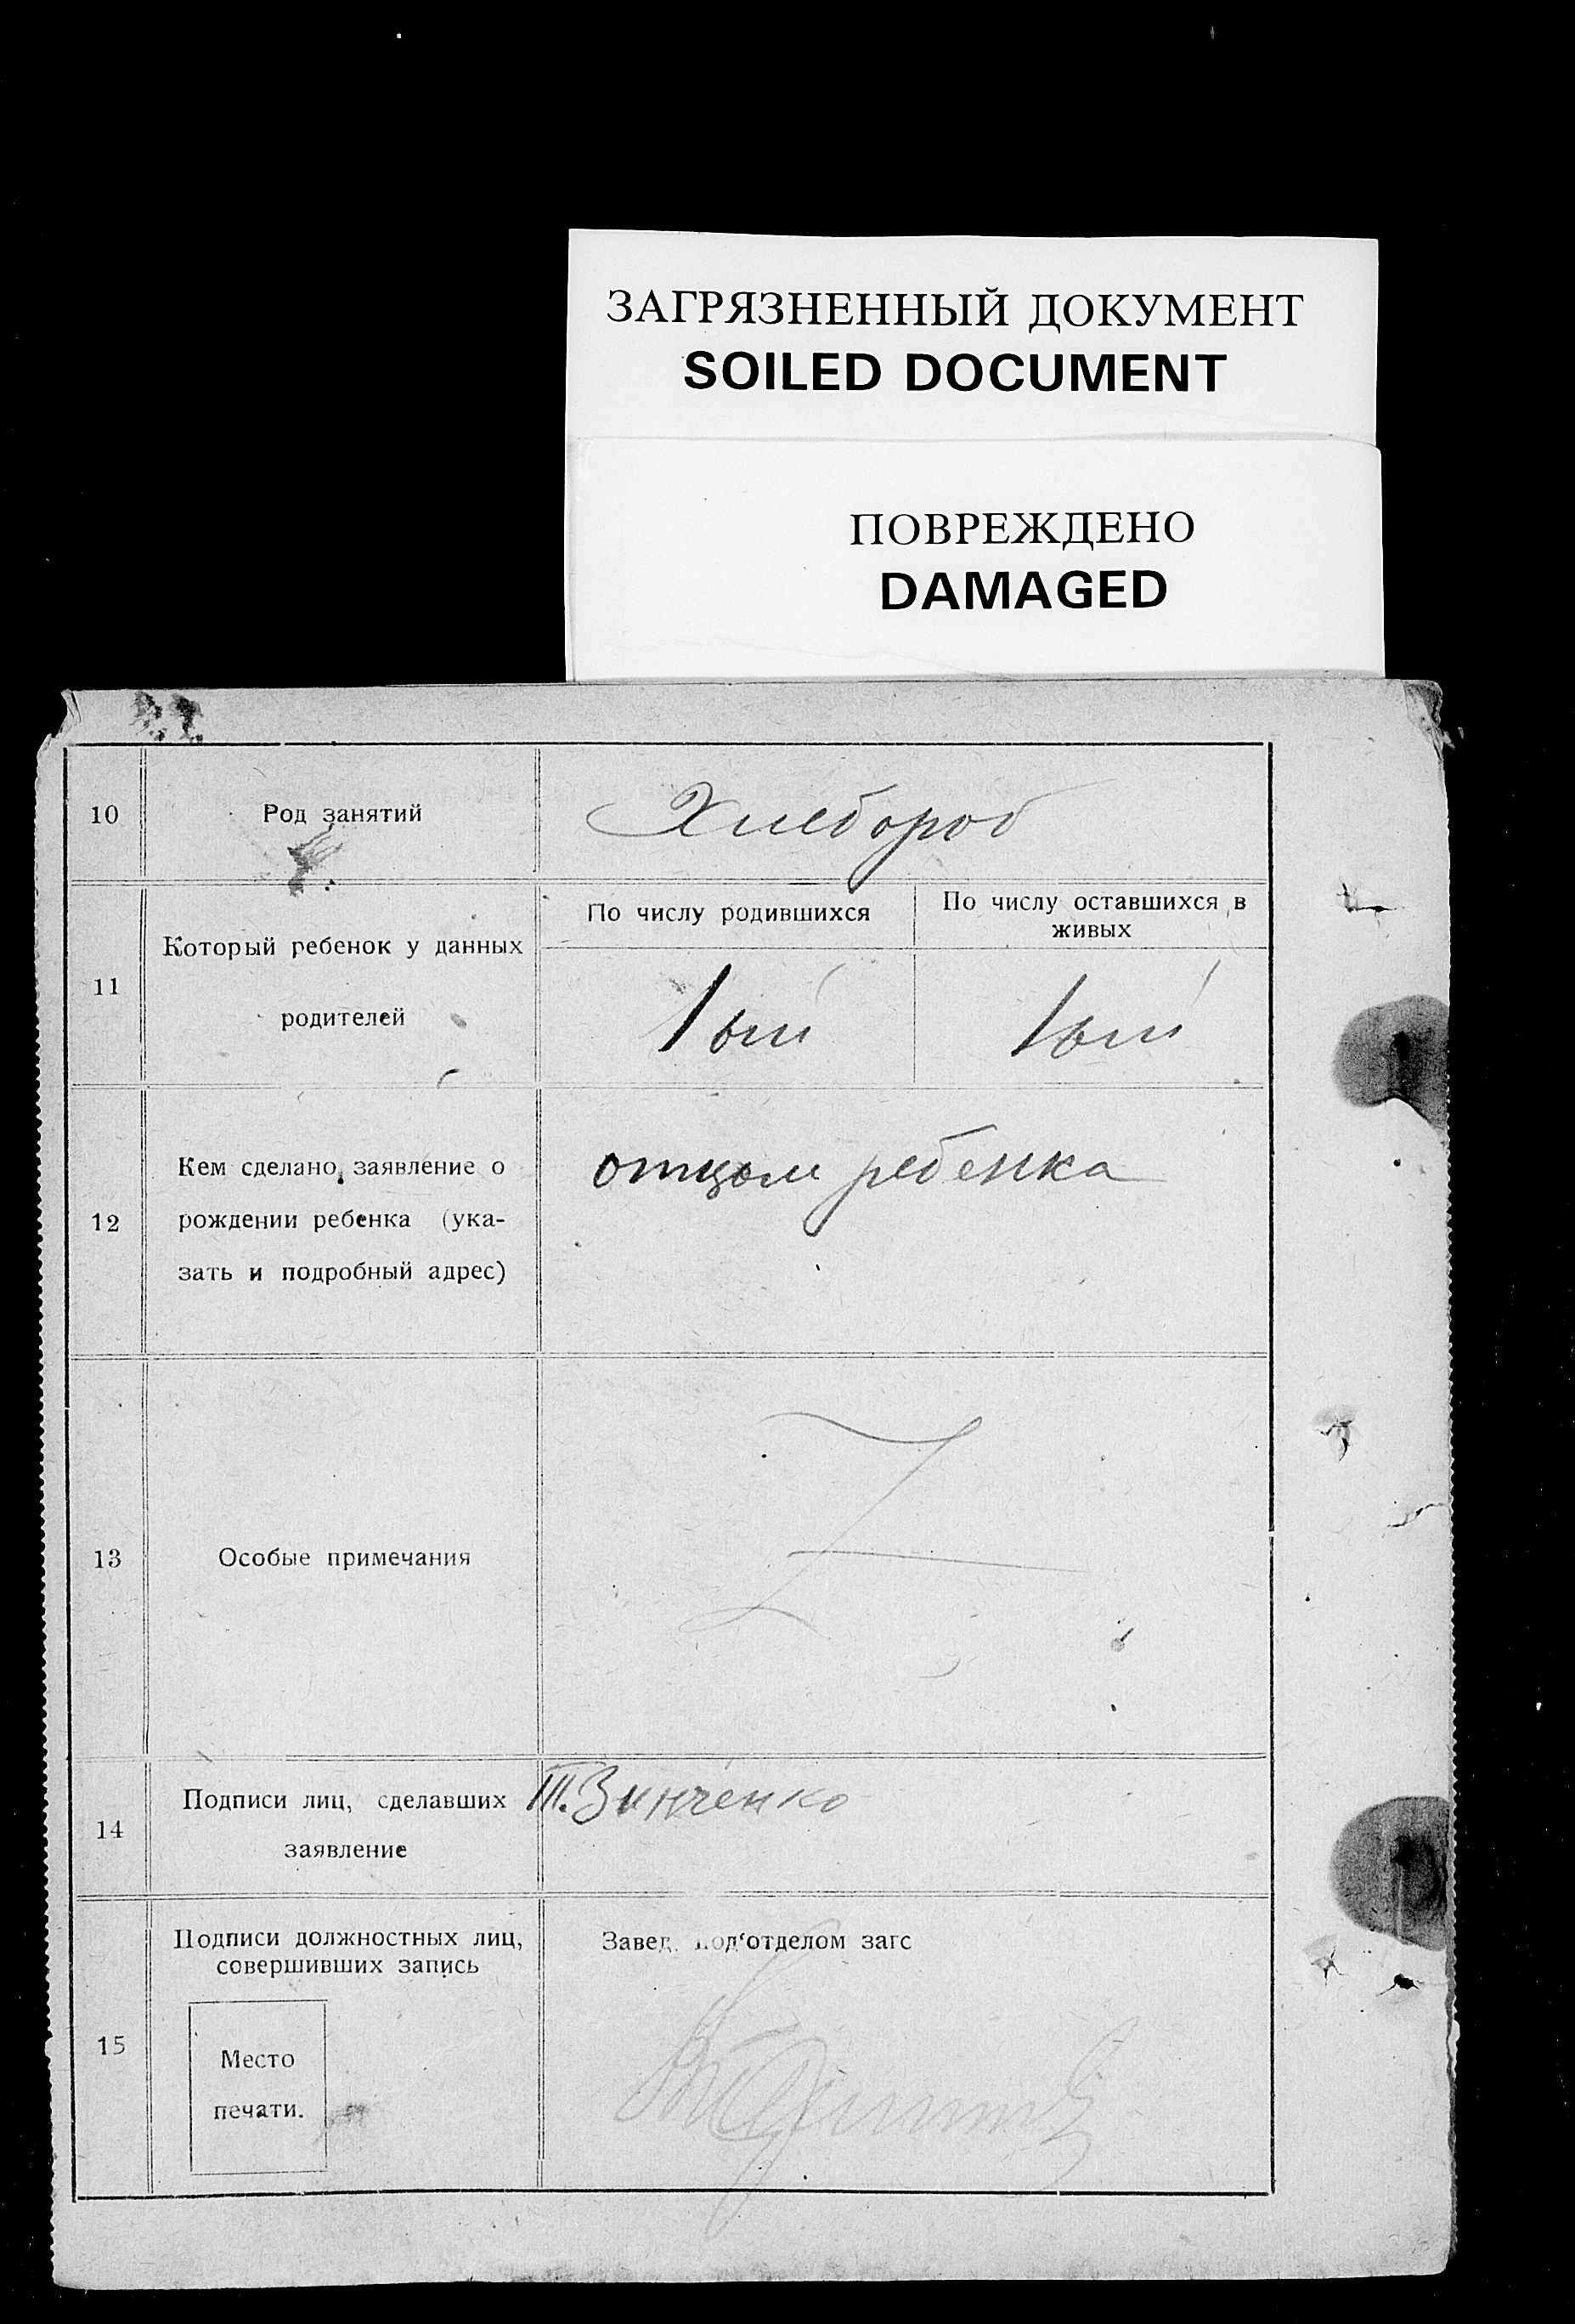 ЗАГРЯЗНЕННЫЙ ДОКУМЕНТ
SOILED DOCUMENT
ПОВРЕЖДЕНО
DAMAGED
10
Род занятий
Хлебороб
11
Который ребенок у данных
родителей
По числу родившихся
По числу оставшихся в
живых
1ый
1ый
12
Кем сделано заявление о
рождении ребенка (ука-
зать и подробный адрес)
отцом ребенка
13
Особые примечания
14
Подписи лиц, сделавших
заявление
Т. Зинченко
15
Подписи должностных лиц,
совершивших запись
Место
печати.
Завед. под‘отделом загс